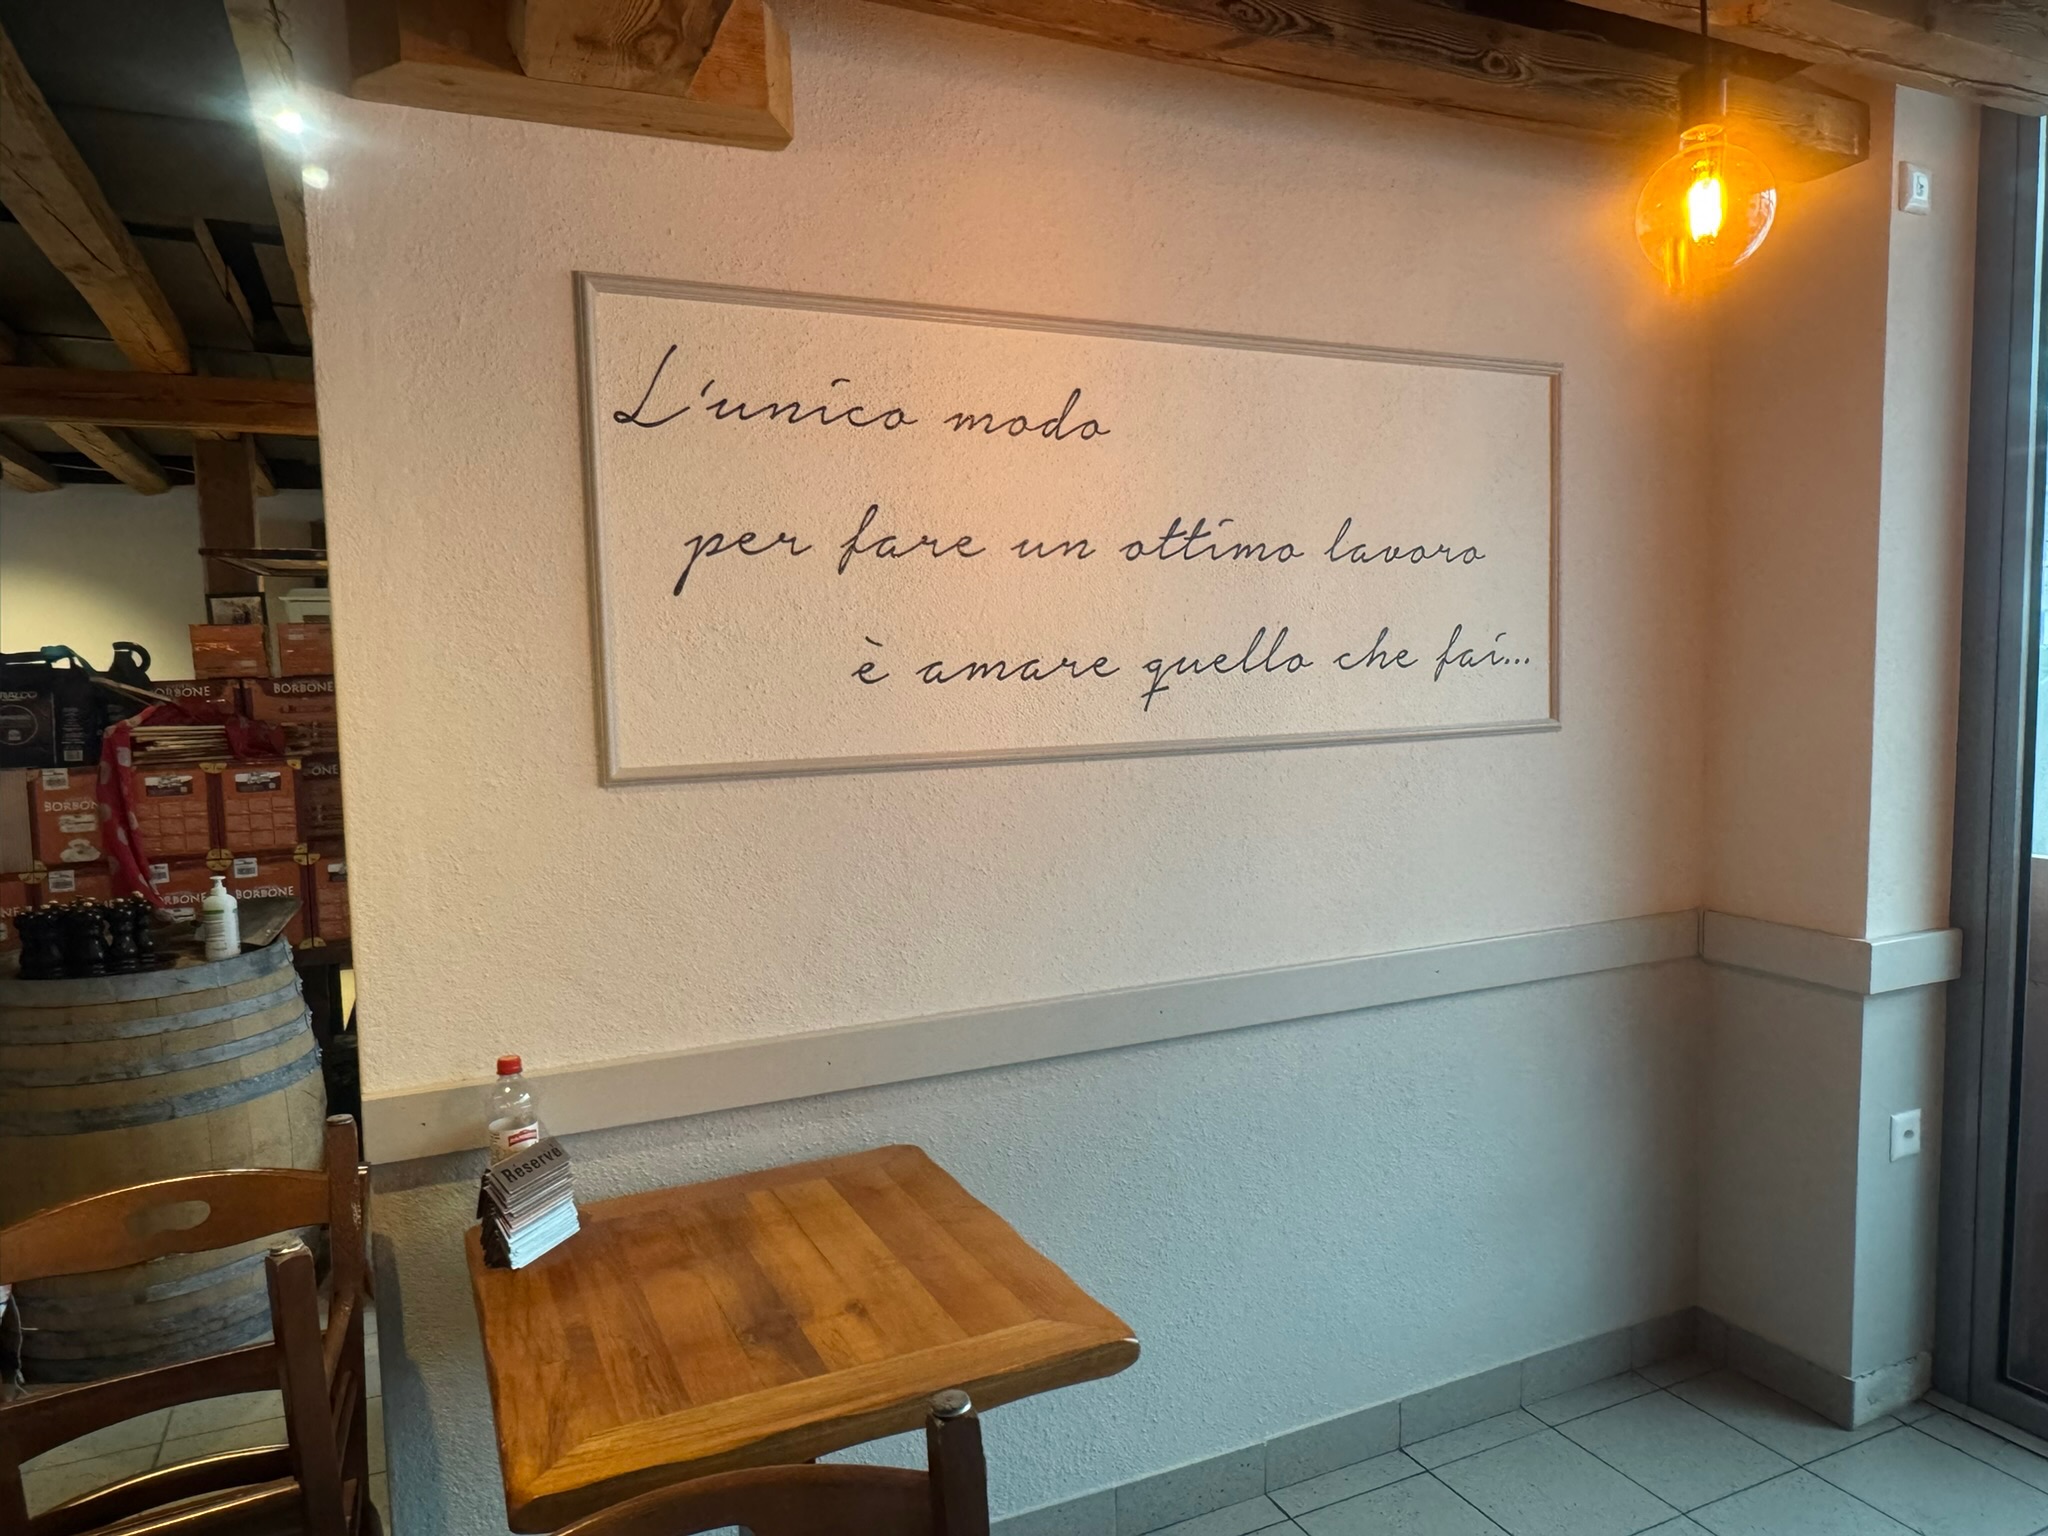 L'unico modo
per fare un ottimo lavoro
è amare quello che fai...
BORBONE
BORBONE
BORBONE
Réservé